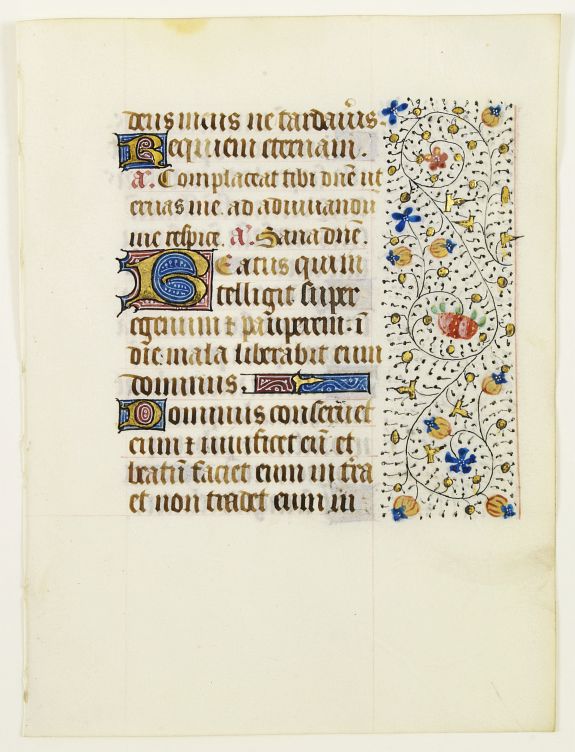 deus meus ne tardaũis.
Requiem eternam.
añ. Complaceat tibi dñe ut
eruas me. ad adiuuandũ
me respice. añ. Sana dñe.
Beatus qui in
telligit super
egenum ⁊ pauperem: ĩ
die mala liberabit eum
dominus.
Dominus conseruet
eum ⁊ uiuificet eũ. et
beatũ faciet eum in tr̃a
et non tradet eum in